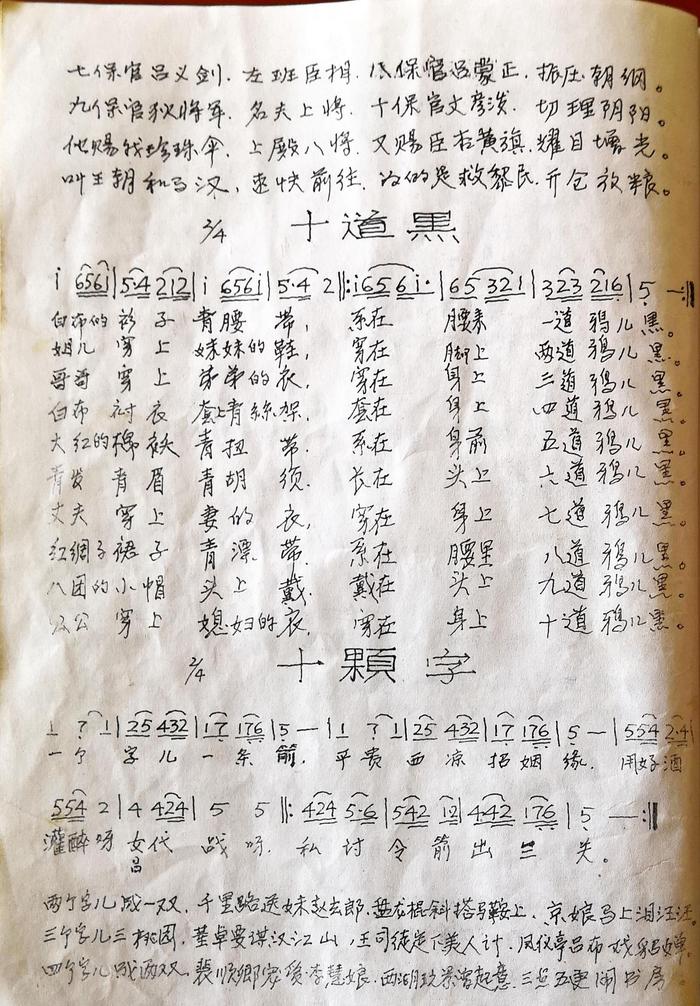 七保官吕义剑. 左班臣相. 八保官吕蒙正. 振压朝纲。
九保官狄将军. 名夫上将. 十保官文彦波. 切理阴阳。
他赐我珍珠伞. 上殿八将. 又赐臣杏黄旗. 耀日增光。
叫王朝和马汉. 速快前往. 为的是救黎民. 开仓放粮。
2/4 十道黑
i 656i|5·4 212|i 656i|5·4 2‖:i656i·|65 321|323 216|5 —:‖
白布的衫子青腰带, 系在腰来一道鸦儿黑。
姐儿穿上妹妹的鞋, 穿在脚上两道鸦儿黑。
哥哥穿上弟弟的衣, 穿在身上三道鸦儿黑。
白布衬衣套上青丝架. 套在身上四道鸦儿黑。
大红的棉袄青扭带. 系在身前五道鸦儿黑。
青发青眉青胡须. 长在头上六道鸦儿黑。
丈夫穿上妻的衣, 穿在身上七道鸦儿黑。
红绸子裙子青漂带. 系在腰里八道鸦儿黑。
八团的小帽头上戴. 戴在头上九道鸦儿黑。
公公穿上媳妇的衣, 穿在身上十道鸦儿黑。
2/4 十顆字
1 7 1|25 432|17 176|5 —|1 7 1|25 432|17 176|5 —|554 2·4|
一个字儿一条箭. 平贵西凉招姻缘. 用好酒
554 2|4 424|5 5‖:424 5·6|542 12|4·42 176|5 —:‖
灌醉呀女代战呀. 私讨令箭出三关。
昌
两个字儿成一双. 千里路送妹赵玄郎. 盘龙棍斜搭马鞍上、京娘马上泪汪汪。
三个字儿三桃园. 董卓要谋汉江山, 王司徒定下美人计. 凤仪亭吕布戏貂婵.
四个字儿成两双. 裴顺卿 李慧娘. 西湖 三更五更闹书房